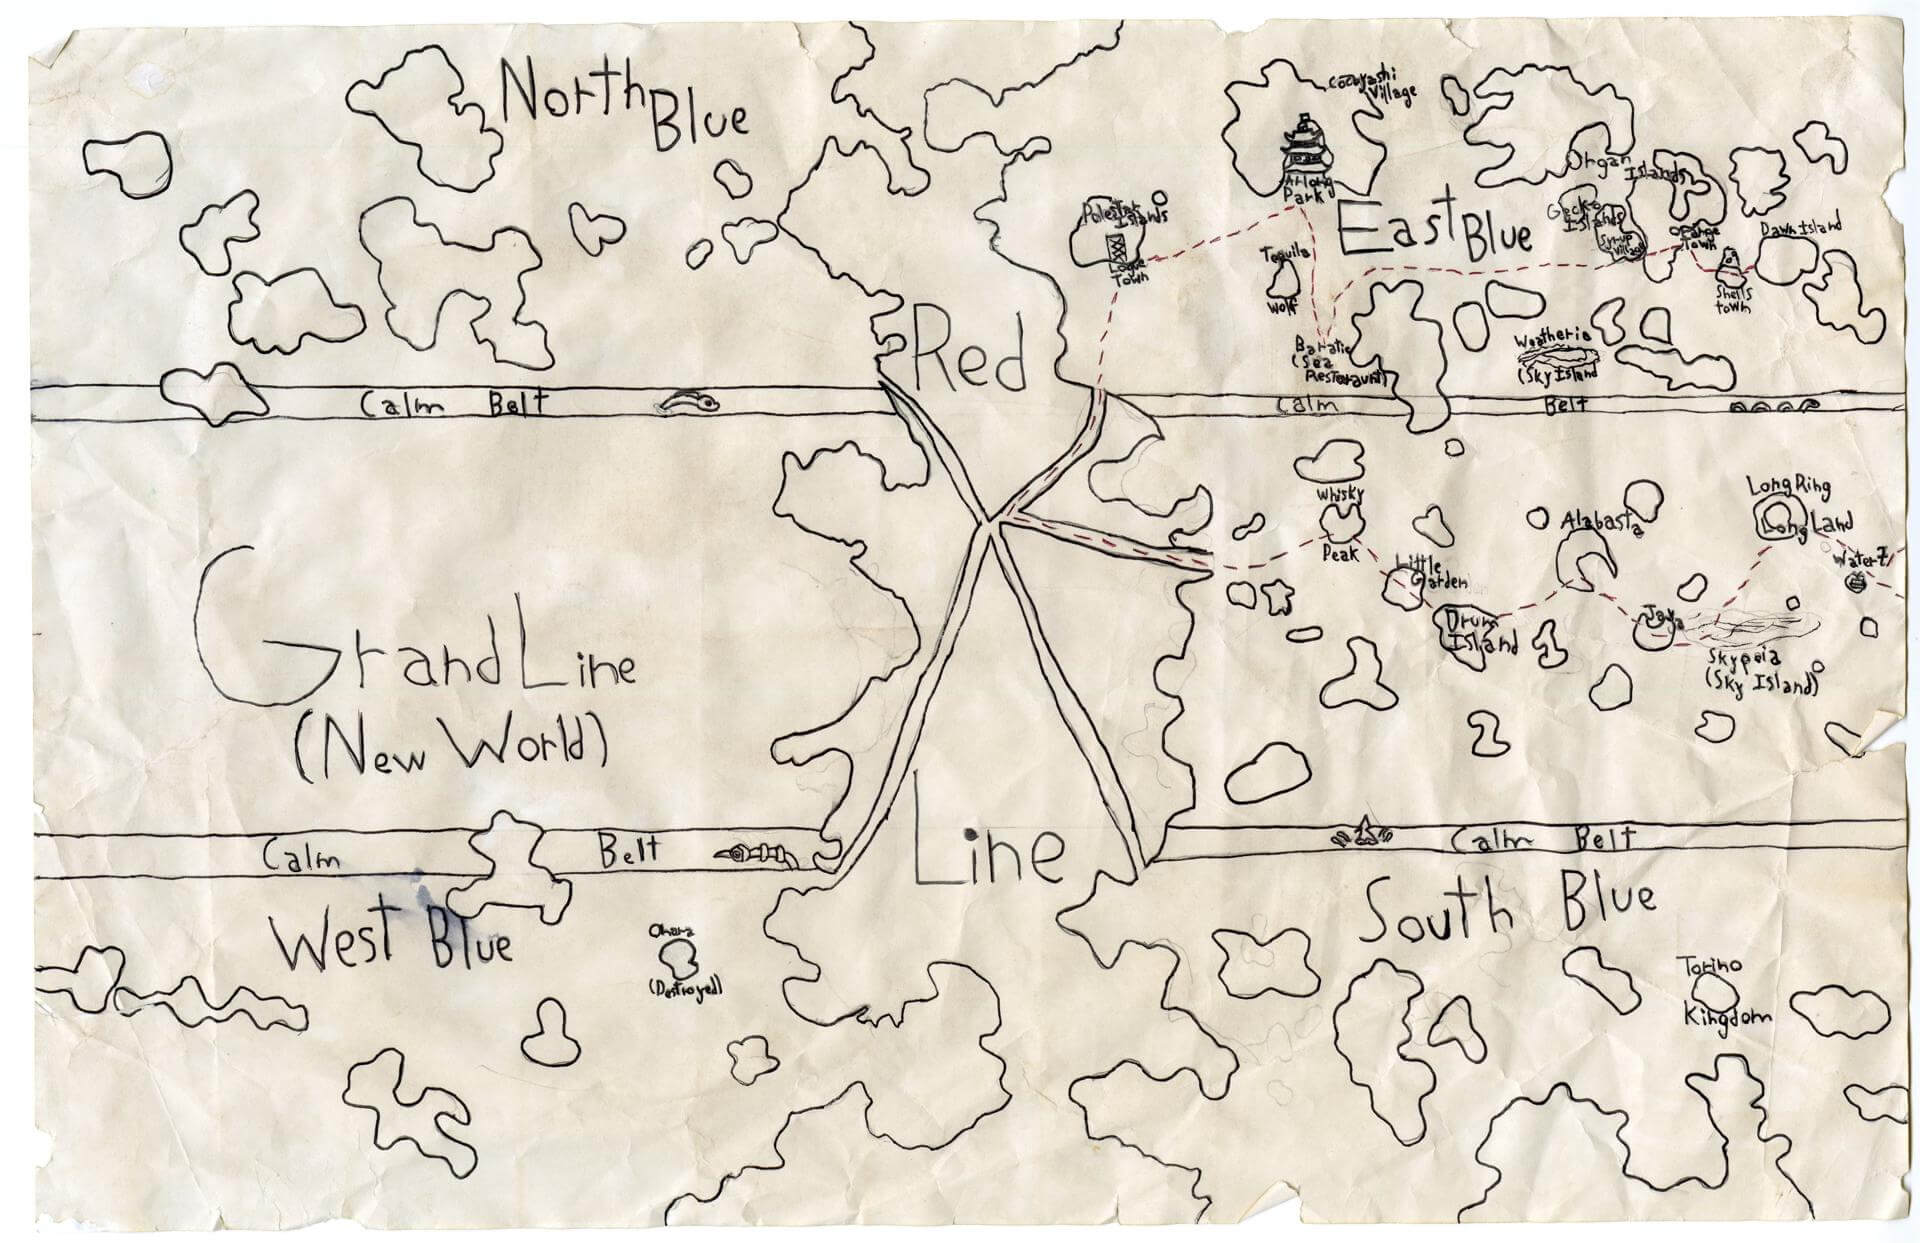 North
Blue
Cocoyashi
Village
Arlong
Park
Polestar
Islands
Logue
Town
East
Blue
Tequila
Wolf
Organ
Islands
Gecko
Islands
Syrup
Village
Orange
Town
Dawn Island
Shells
town
Baratie
(Sea
Restaraunt)
Weatheria
(Sky Island
Red
Line
Calm Belt
Calm Belt
Whisky
Peak
Little
Garden
Drum
Island
Alabasta
Jaya
Skypeia
(Sky Island)
Long Ring
Long Land
Water 7
Grand Line
(New World)
Calm Belt
Calm Belt
West Blue
Ohara
(Destroyed)
South Blue
Torino
Kingdom